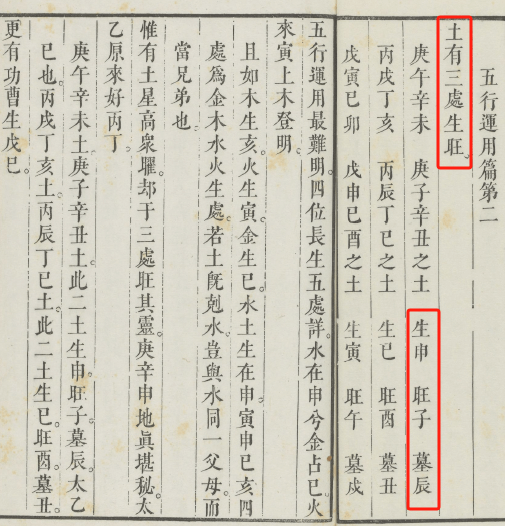 五行運用篇第二
土有三處生旺。
庚午辛未 庚子辛丑之土 生申 旺子 墓辰
丙戌丁亥 丙辰丁巳之土 生巳 旺酉 墓丑
戊寅巳卯 戊申巳酉之土 生寅 旺午 墓戌
五行運用最難明。四位長生五處詳。水在申兮金占巳。火
來寅上木登明。
且如木生亥。火生寅。金生巳。水土生在申。寅申巳亥四
處爲金木水火生處。若土旣剋水。豈與水同一父母。而
當兄弟也。
惟有土星高衆曜。却于三處旺其靈。庚辛申地眞堪秘。太
乙原來好丙丁。
庚午辛未土。庚子辛丑土。此二土生申。旺子。墓辰。太乙
巳也。丙戌丁亥土。丙辰丁巳土。此二土生巳。旺酉。墓丑。
更有功曹生戊巳。